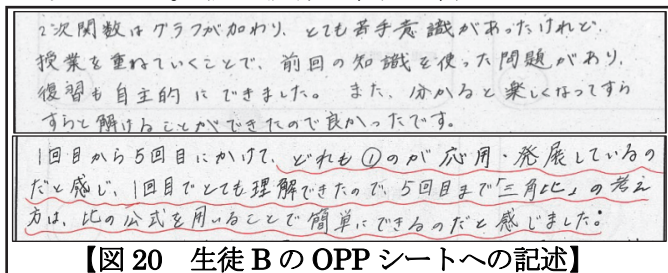 2次関数はグラフが加わり、とても苦手意識があったけれど、
授業を重ねていくことで、前回の知識を使った問題があり、
復習も自主的にできました。また、分かると楽しくなってすら
すらと解けることができたので良かったです。
1回目から5回目にかけて、どれも①のが応用・発展しているの
だと感じ、1回目でとても理解できたので、5回目まで「三角比」の考え
方は、比の公式を用いることで簡単にできるのだと感じました。
【図 20 生徒 B の OPP シートへの記述】